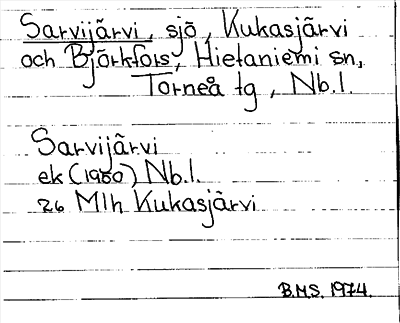 Sarvijärvi, sjö, Kukasjärvi
och Björkfors, Hietaniemi sn,
Torneå tg, Nb.l.
Sarvijärvi
ek (1950) Nb.l.
26 Mlh Kukasjärvi
B.M.S. 1974.